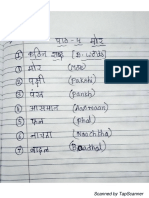 पाठ - 4 मोर
① कठिन शब्द [D. words]
② मोर (Mor)
③ पक्षी (Pakshi)
④ पंख (Pankh)
⑤ आसमान (Aasmaan)
⑥ फल (phal)
⑦ नाचता (Naachtha)
बादल (Baadhal)
Scanned by TapScanner